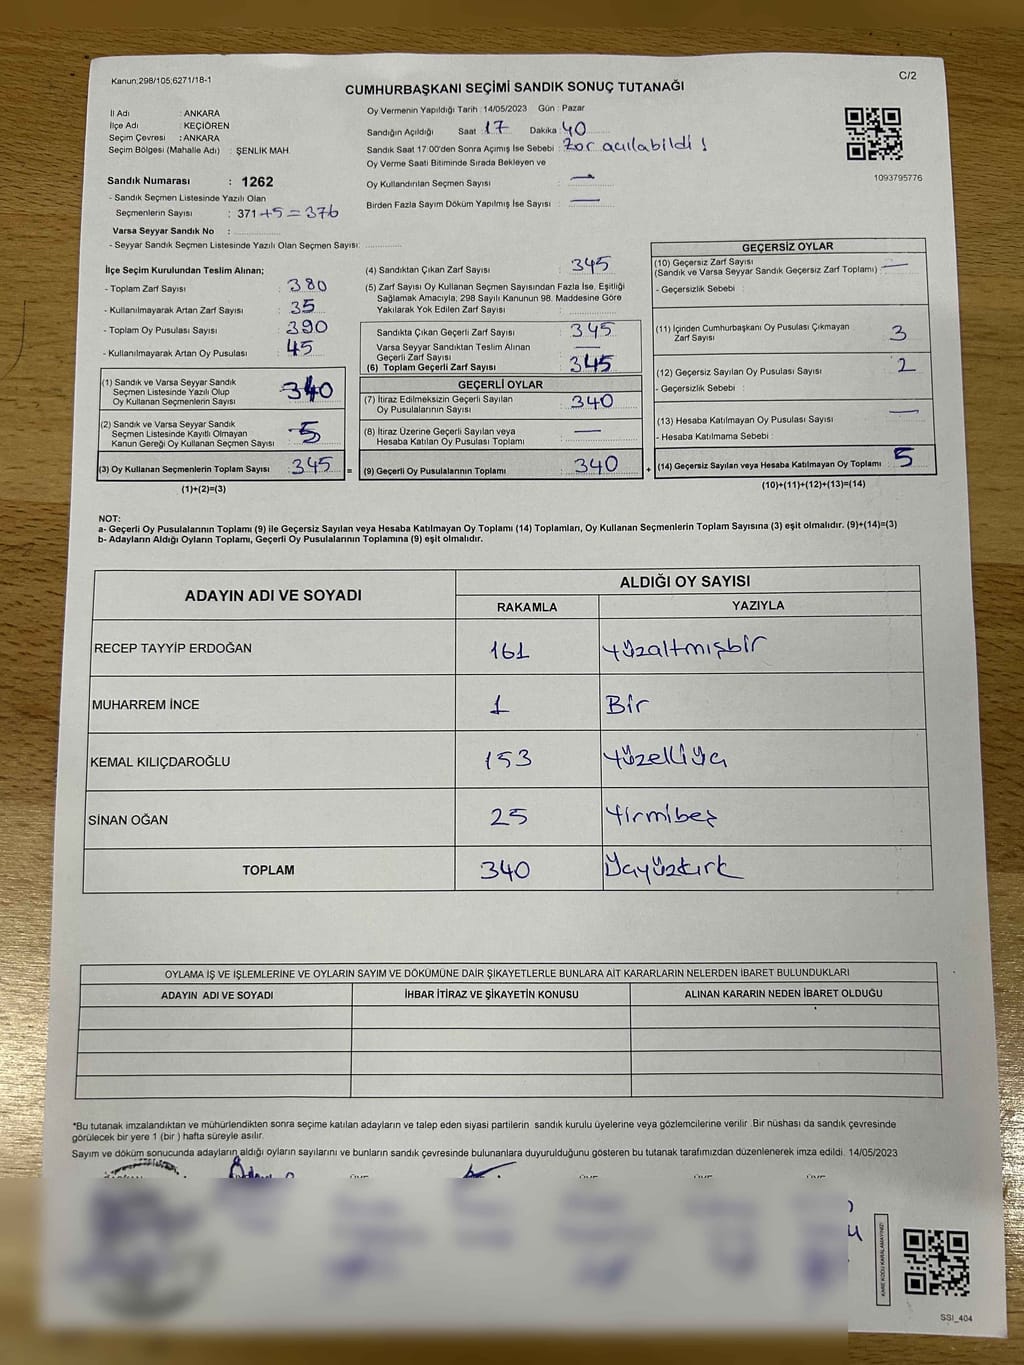 Kanun;298/105;6271/18-1
C/2
CUMHURBAŞKANI SEÇİMİ SANDIK SONUÇ TUTANAĞI
İl Adı : ANKARA
İlçe Adı : KEÇİÖREN
Seçim Çevresi : ANKARA
Seçim Bölgesi (Mahalle Adı) : ŞENLİK MAH.
Oy Vermenin Yapıldığı Tarih : 14/05/2023 Gün : Pazar
Sandığın Açıldığı Saat : 17 Dakika : 40
Sandık Saat 17:00'den Sonra Açımış İse Sebebi : Zor açılabildi !
Oy Verme Saati Bitiminde Sırada Bekleyen ve
Oy Kullandırılan Seçmen Sayısı : —
Birden Fazla Sayım Döküm Yapılmış İse Sayısı : —
1093795776
Sandık Numarası : 1262
- Sandık Seçmen Listesinde Yazılı Olan
Seçmenlerin Sayısı : 371+5=376
Varsa Seyyar Sandık No :
- Seyyar Sandık Seçmen Listesinde Yazılı Olan Seçmen Sayısı:
İlçe Seçim Kurulundan Teslim Alınan;
- Toplam Zarf Sayısı : 380
- Kullanılmayarak Artan Zarf Sayısı : 35
- Toplam Oy Pusulası Sayısı : 390
- Kullanılmayarak Artan Oy Pusulası : 45
(1) Sandık ve Varsa Seyyar Sandık
Seçmen Listesinde Yazılı Olup
Oy Kullanan Seçmenlerin Sayısı : 340
(2) Sandık ve Varsa Seyyar Sandık
Seçmen Listesinde Kayıtlı Olmayan
Kanun Gereği Oy Kullanan Seçmen Sayısı : 5
(3) Oy Kullanan Seçmenlerin Toplam Sayısı : 345
(1)+(2)=(3)
(4) Sandıktan Çıkan Zarf Sayısı : 345
(5) Zarf Sayısı Oy Kullanan Seçmen Sayısından Fazla İse, Eşitliği
Sağlamak Amacıyla; 298 Sayılı Kanunun 98. Maddesine Göre
Yakılarak Yok Edilen Zarf Sayısı :
Sandıkta Çıkan Geçerli Zarf Sayısı : 345
Varsa Seyyar Sandıktan Teslim Alınan
Geçerli Zarf Sayısı : —
(6) Toplam Geçerli Zarf Sayısı : 345
GEÇERLİ OYLAR
(7) İtiraz Edilmeksizin Geçerli Sayılan
Oy Pusulalarının Sayısı : 340
(8) İtiraz Üzerine Geçerli Sayılan veya
Hesaba Katılan Oy Pusulası Toplamı : —
=
(9) Geçerli Oy Pusulalarının Toplamı : 340
+
GEÇERSİZ OYLAR
(10) Geçersiz Zarf Sayısı
(Sandık ve Varsa Seyyar Sandık Geçersiz Zarf Toplamı) : —
- Geçersizlik Sebebi :
(11) İçinden Cumhurbaşkanı Oy Pusulası Çıkmayan
Zarf Sayısı : 3
(12) Geçersiz Sayılan Oy Pusulası Sayısı : 2
- Geçersizlik Sebebi :
(13) Hesaba Katılmayan Oy Pusulası Sayısı : —
- Hesaba Katılmama Sebebi :
(14) Geçersiz Sayılan veya Hesaba Katılmayan Oy Toplamı : 5
(10)+(11)+(12)+(13)=(14)
NOT:
a- Geçerli Oy Pusulalarının Toplamı (9) ile Geçersiz Sayılan veya Hesaba Katılmayan Oy Toplamı (14) Toplamları, Oy Kullanan Seçmenlerin Toplam Sayısına (3) eşit olmalıdır. (9)+(14)=(3)
b- Adayların Aldığı Oyların Toplamı, Geçerli Oy Pusulalarının Toplamına (9) eşit olmalıdır.
ADAYIN ADI VE SOYADI
ALDIĞI OY SAYISI
RAKAMLA YAZIYLA
RECEP TAYYİP ERDOĞAN 161 Yüzaltmışbir
MUHARREM İNCE 1 Bir
KEMAL KILIÇDAROĞLU 153 Yüzelliüç
SİNAN OĞAN 25 Yirmibeş
TOPLAM 340 Üçyüzkırk
OYLAMA İŞ VE İŞLEMLERİNE VE OYLARIN SAYIM VE DÖKÜMÜNE DAİR ŞİKAYETLERLE BUNLARA AİT KARARLARIN NELERDEN İBARET BULUNDUKLARI
ADAYIN ADI VE SOYADI İHBAR İTİRAZ VE ŞİKAYETİN KONUSU ALINAN KARARIN NEDEN İBARET OLDUĞU
*Bu tutanak imzalandıktan ve mühürlendikten sonra seçime katılan adayların ve talep eden siyasi partilerin sandık kurulu üyelerine veya gözlemcilerine verilir .Bir nüshası da sandık çevresinde
görülecek bir yere 1 (bir ) hafta süreyle asılır.
Sayım ve döküm sonucunda adayların aldığı oyların sayılarını ve bunların sandık çevresinde bulunanlara duyurulduğunu gösteren bu tutanak tarafımızdan düzenlenerek imza edildi. 14/05/2023
KARE KODU KARALAMAYINIZ!
SSI_404